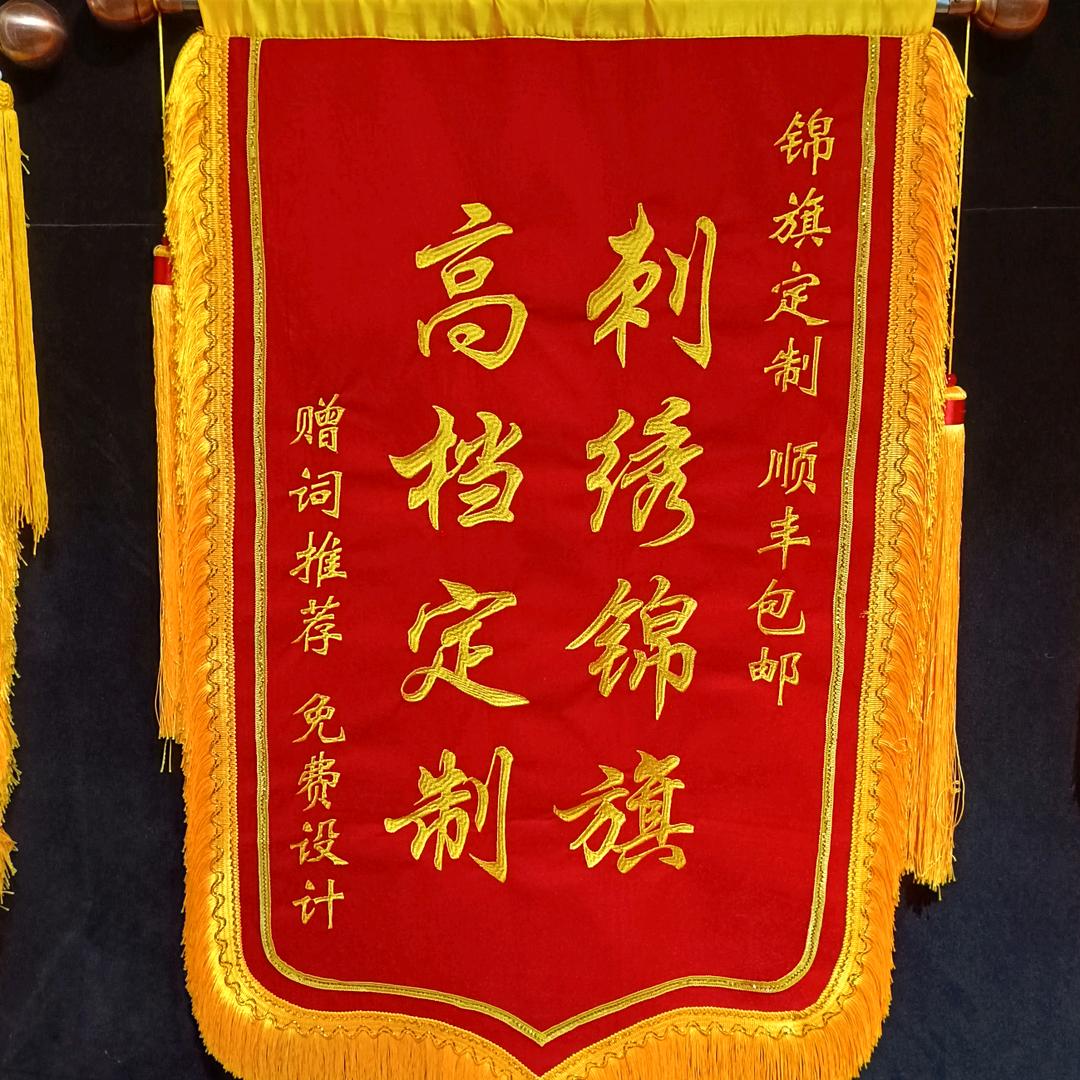 锦旗定制 顺丰包邮
刺绣锦旗
高档定制
赠词推荐 免费设计